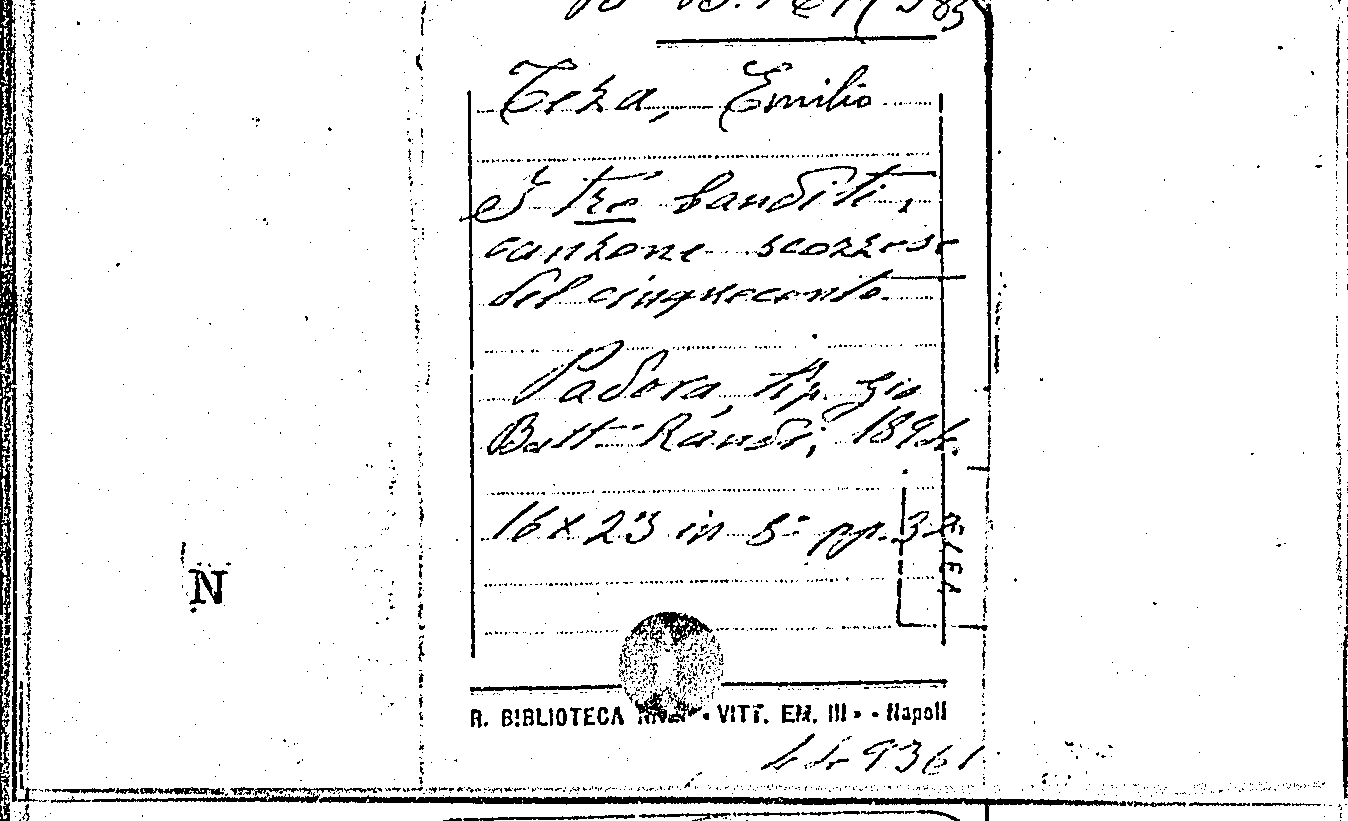 Teza, Emilio
I tre banditi,
canzone scozzese
del cinquecento.
Padova, tip. Gio
Batt Randi, 1894.
16x23 in 8° pp. 32.
N
R. BIBLIOTECA "VITT. EM. III" - Napoli
449361